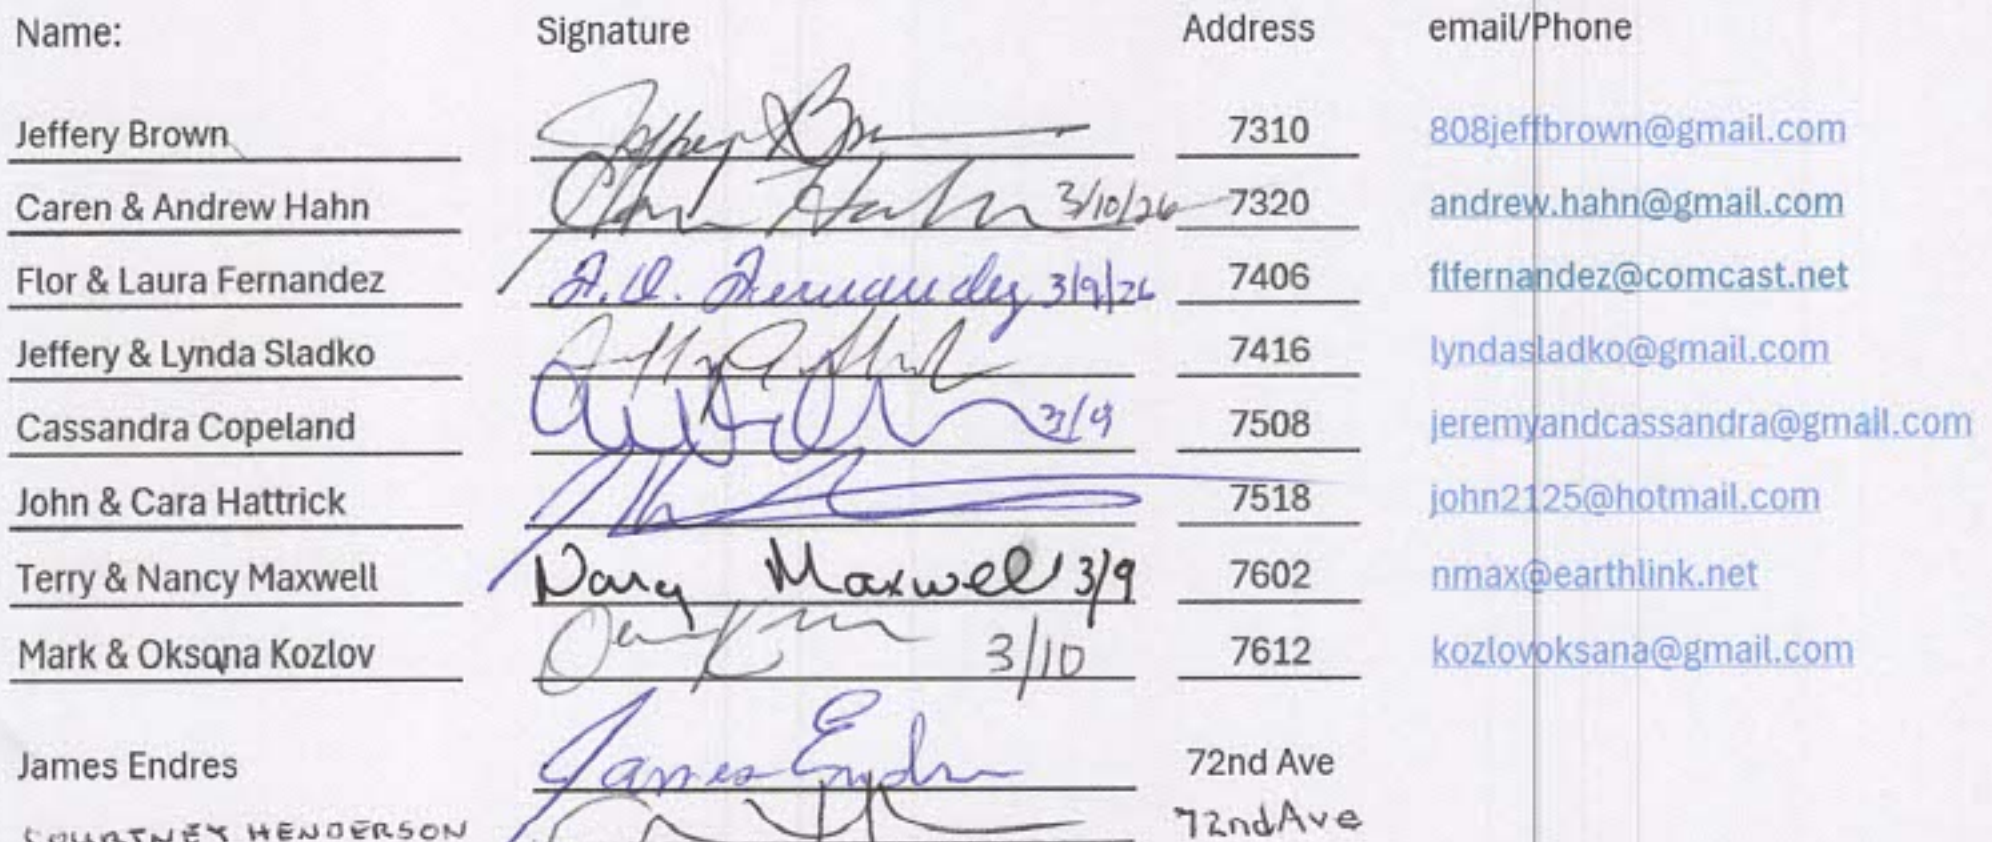 Name: Signature Address email/Phone
Jeffery Brown 7310 808jeffbrown@gmail.com
Caren & Andrew Hahn 3/10/26 7320 andrew.hahn@gmail.com
Flor & Laura Fernandez Fernandez 3/9/26 7406 flfernandez@comcast.net
Jeffery & Lynda Sladko 7416 lyndasladko@gmail.com
Cassandra Copeland 3/9 7508 jeremyandcassandra@gmail.com
John & Cara Hattrick 7518 john2125@hotmail.com
Terry & Nancy Maxwell Nancy Maxwell 3/9 7602 nmax@earthlink.net
Mark & Oksana Kozlov 3/10 7612 kozlovoksana@gmail.com
James Endres James Endres 72nd Ave
COURTNEY HENDERSON 72nd Ave